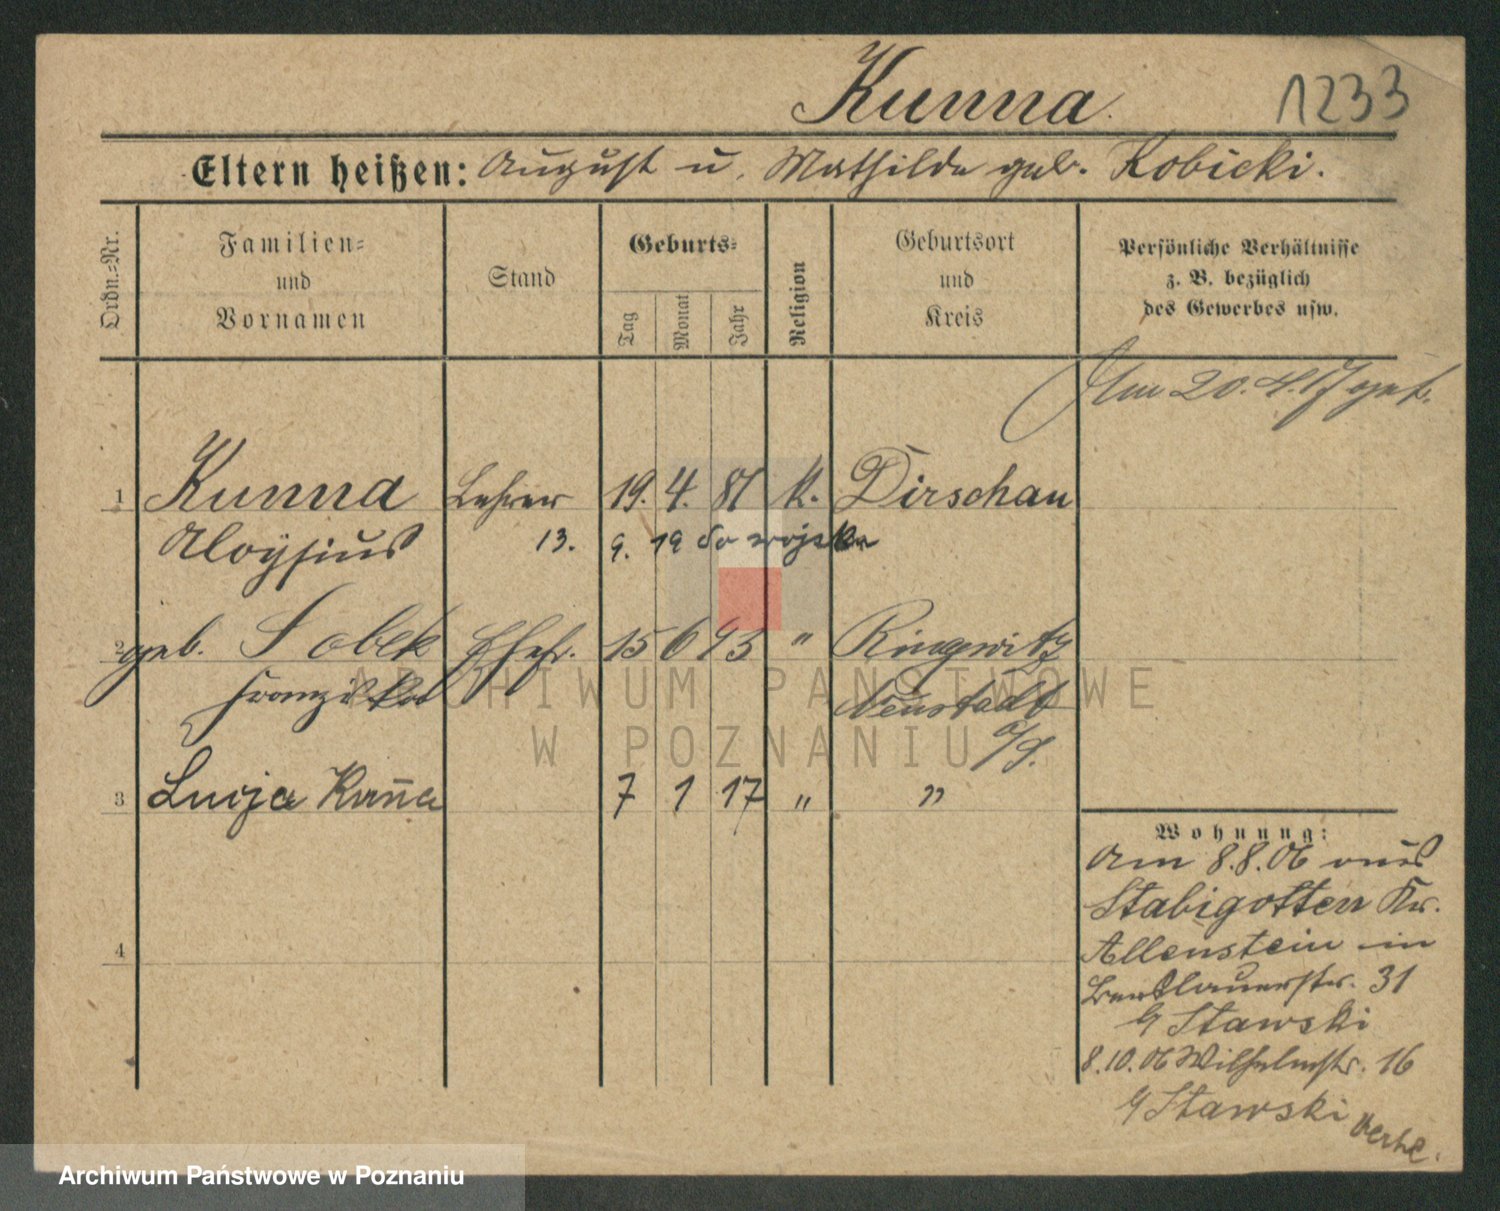 Kunna
1233
Eltern heißen: August u. Mathilde geb. Kobicki.
Ordn.=Nr.
Familien=
und
Vornamen
Stand
Geburts=
Tag
Monat
Jahr
Religion
Geburtsort
und
Kreis
Persönliche Verhältnisse
z. B. bezüglich
des Gewerbes usw.
Am 20.4.17 get.
1 Kunna Lehrer 19. 4. 81 K. Dirschau
Aloysius 13. 9. 19 do wojska
2 geb. Sobek Ehefr. 15 6 93 " Ringwitz
Franziska Neustadt
O/S.
3 Lucja Kuna 7 1 17 " "
4
Wohnung:
Am 8.8.06 aus
Stabigotten Kr.
Allenstein in
31
Stawski
8.10.06 Wilhelmstr. 16
Stawski
Archiwum Państwowe w Poznaniu
ARCHIWUM PAŃSTWOWE
W POZNANIU